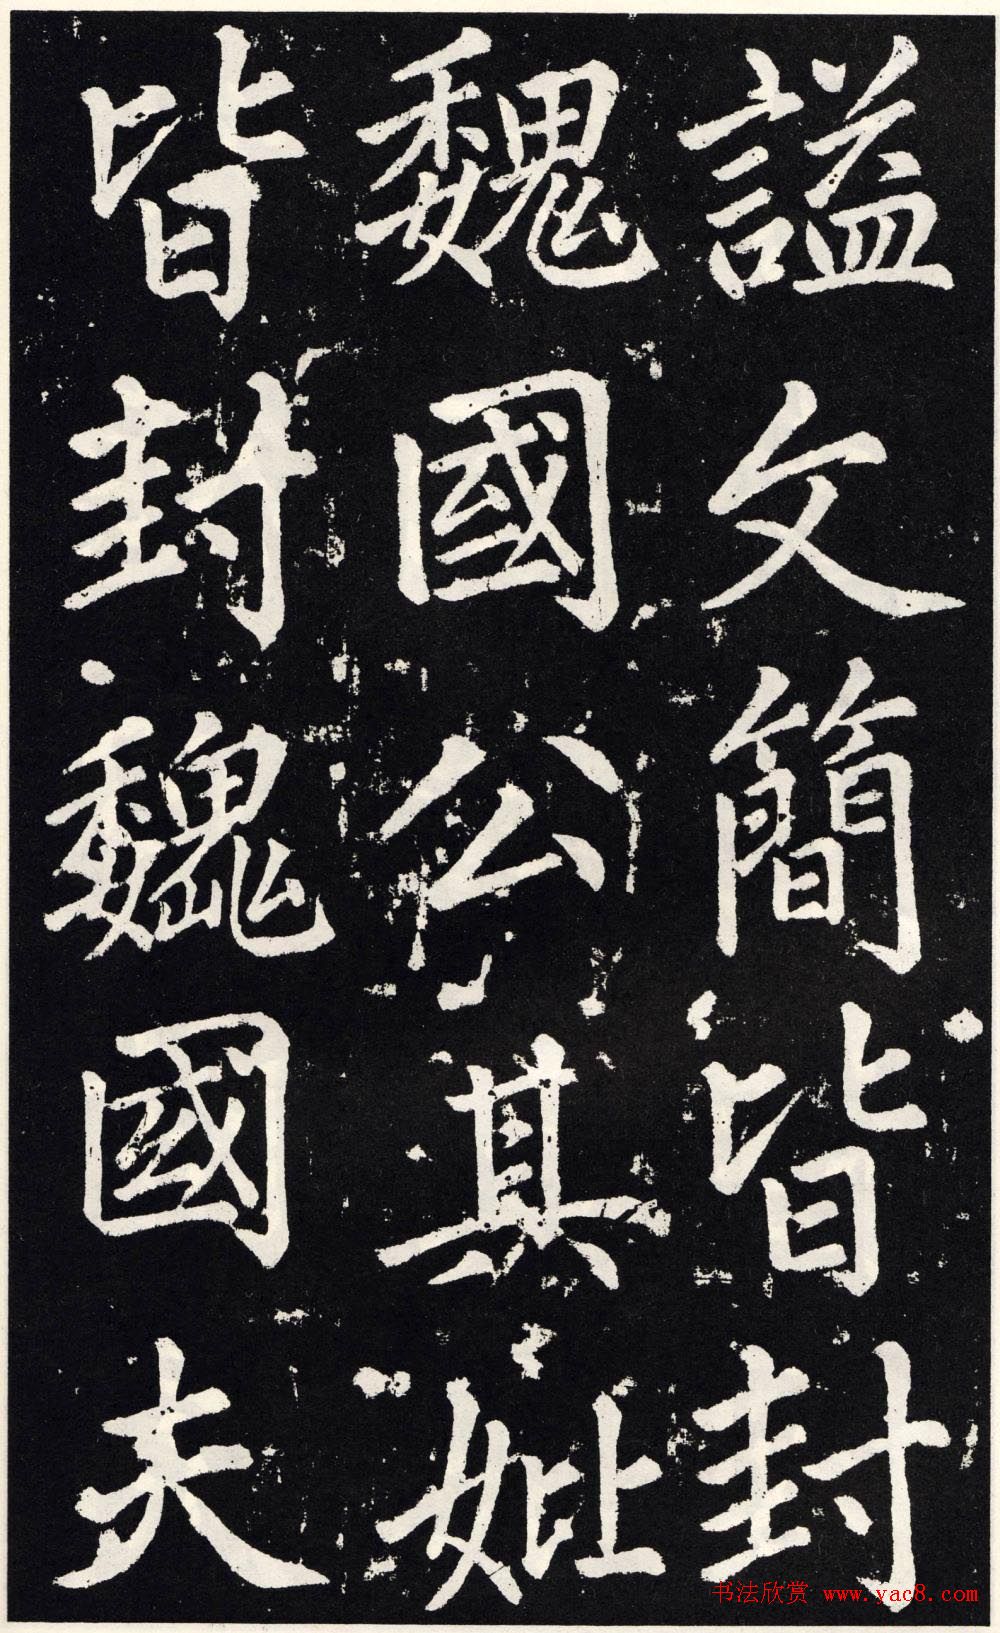 謚文簡皆封
魏國公其妣
皆封魏國夫
书法欣赏 www.yac8.com